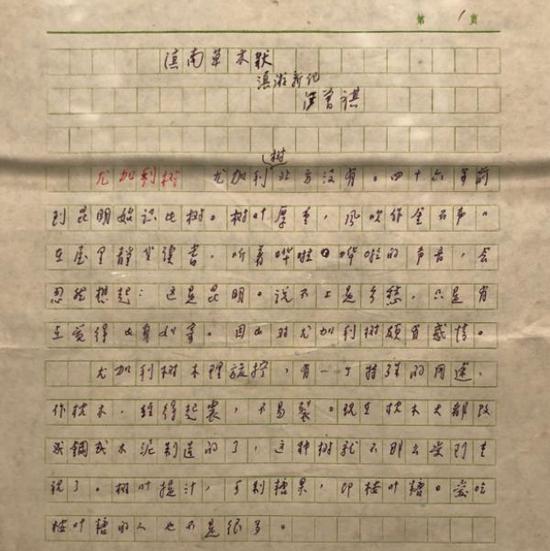 第1页
滇南草木状
滇游新记
汪曾祺
尤加利树 尤加利树北方没有。四十六年前
到昆明始识此树。树叶厚重，风吹作金石声。
在屋里静坐读书，听着哗啦哗啦的声音，会
忽然想起：这是昆明。说不上是乡愁，只是有
点觉得此身如寄。因此对尤加利树颇有感情。
尤加利树木理旋拧，有一个特殊的用途，
作枕木，经得起震，不易裂。现在枕木大都改
成钢或水泥制造的了，这种树就不那么受到重
视了。树叶提汁，可制糖果，即桉叶糖。爱吃
桉叶糖的人也不是很多。